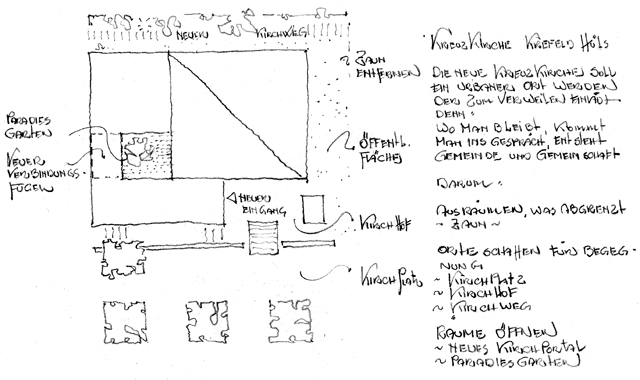 NEUER KIRCHWEG
ZAUN
ENTFERNEN
PARADIES
GARTEN
NEUER
VERBINDUNGS-
FLÜGEL
ÖFFENTL.
FLÄCHE
NEUER
EINGANG
KIRCHHOF
KIRCHPLATZ
KREUZKIRCHE KREFELD HÜLS
DIE NEUE KREUZKIRCHE SOLL
EIN URBANER ORT WERDEN
DER ZUM VERWEILEN EINLÄDT
DENN:
WO MAN BLEIBT, KOMMT
MAN INS GESPRÄCH, ENTSTEHT
GEMEINDE UND GEMEINSCHAFT
DARUM:
AUSRÄUMEN, WAS ABGRENZT
~ ZAUN ~
ORTE SCHAFFEN FÜR BEGEG-
NUNG
~ KIRCHPLATZ
~ KIRCHHOF
~ KIRCHWEG
RÄUME ÖFFNEN
~ NEUES KIRCHPORTAL
~ PARADIESGARTEN